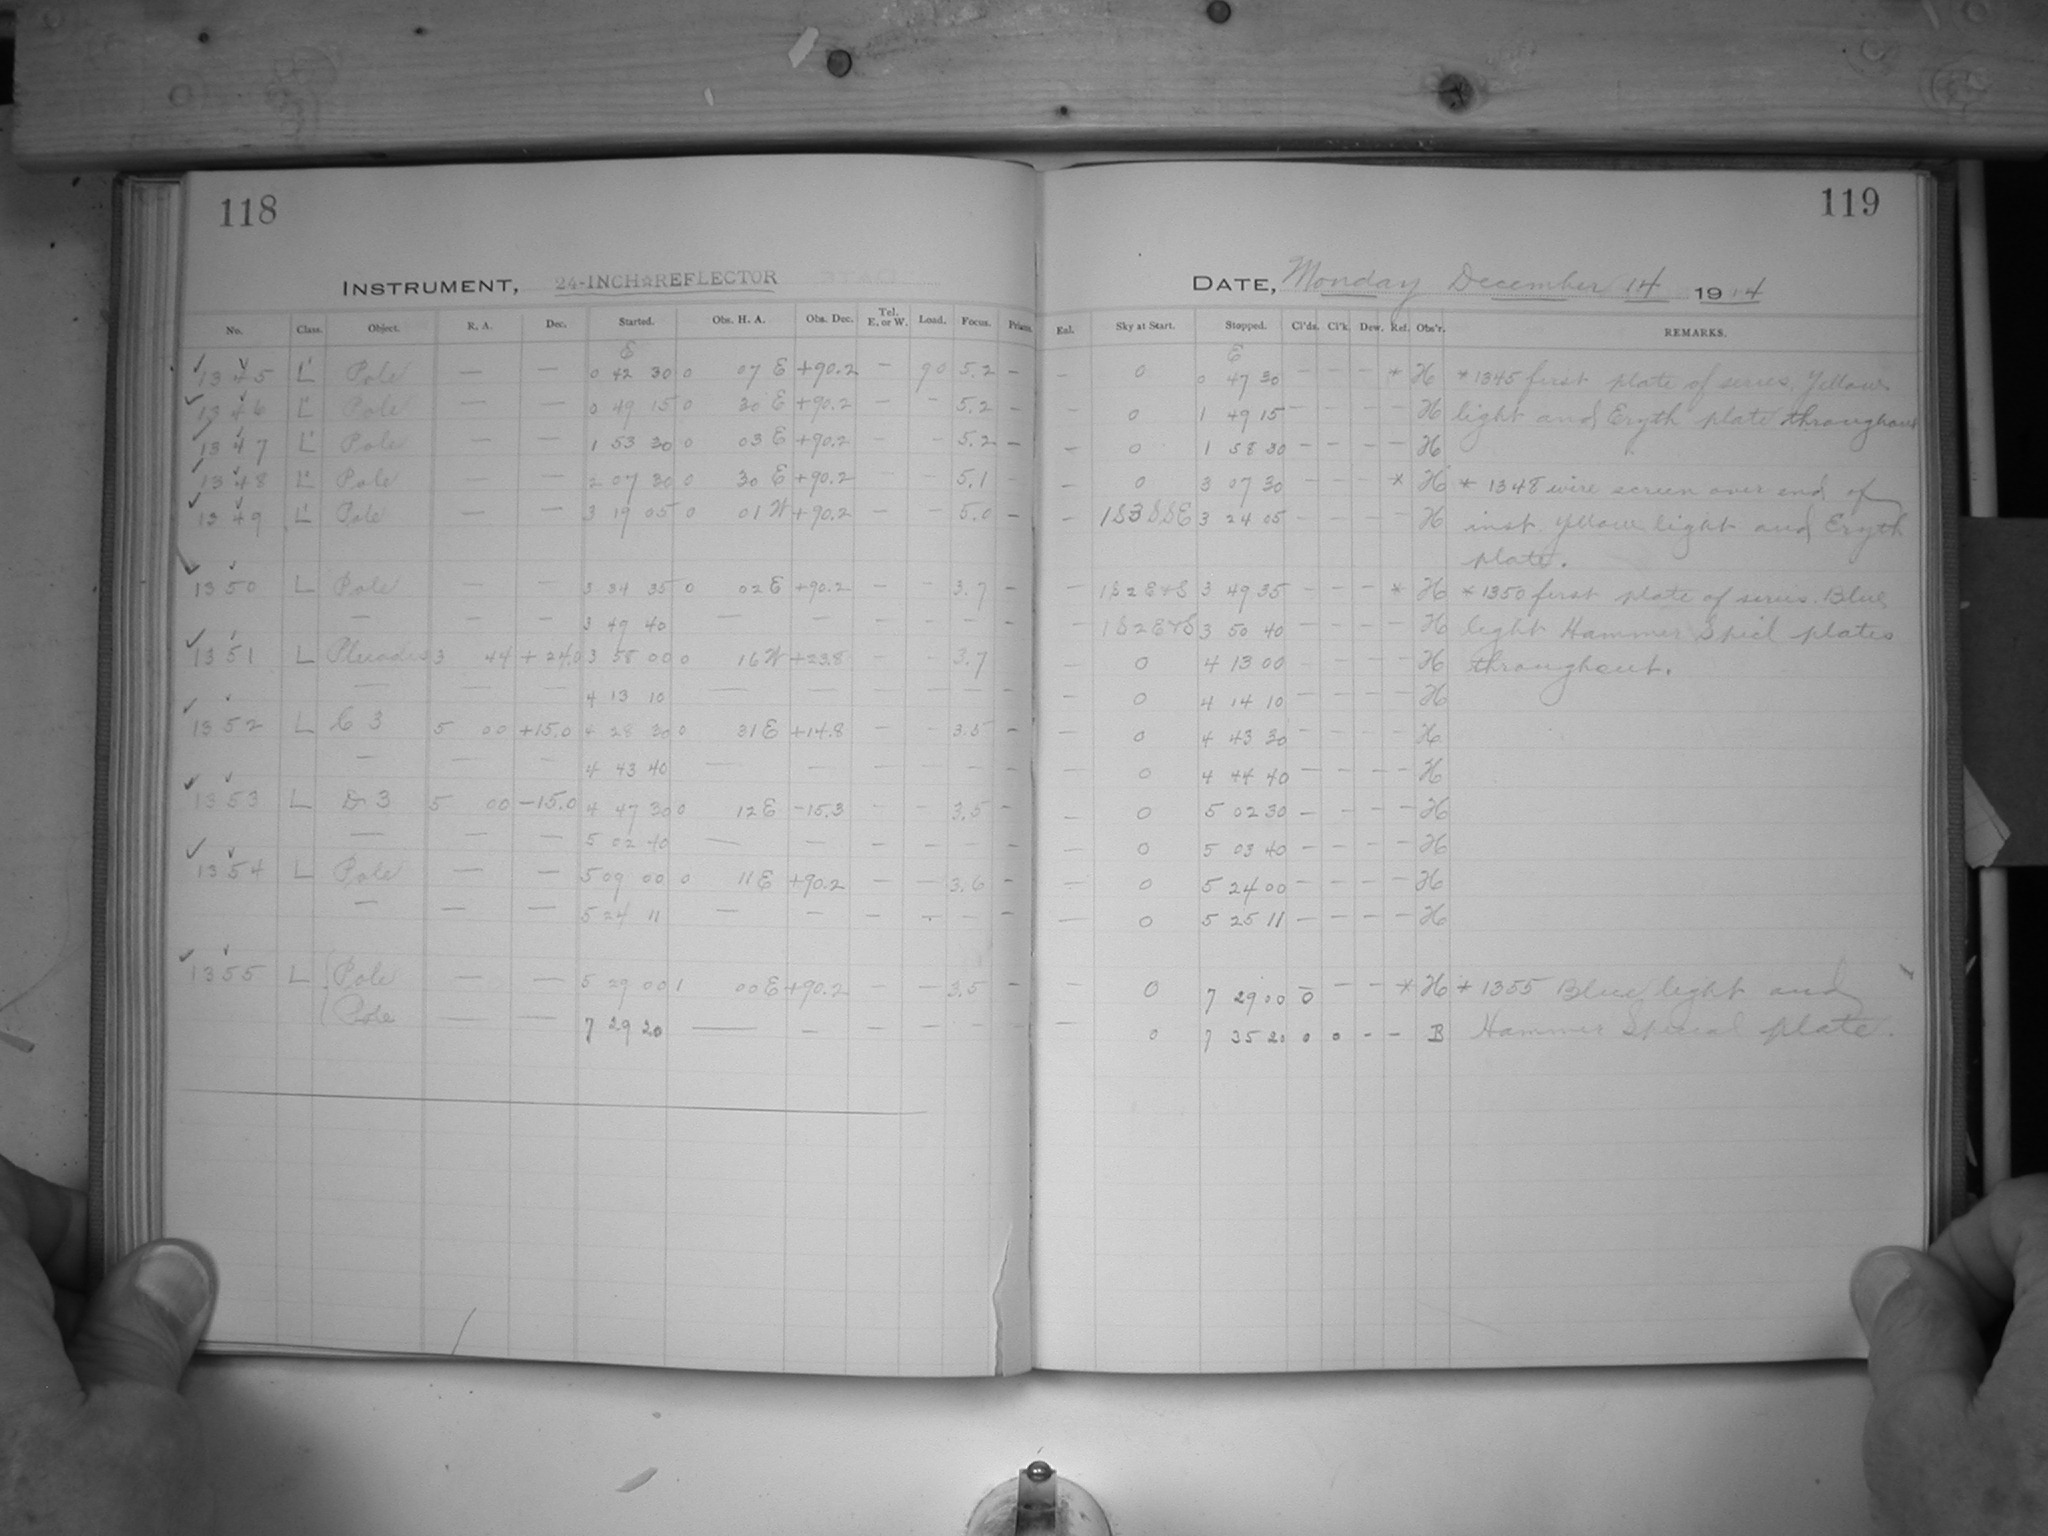 118
INSTRUMENT, 24-INCH☆REFLECTOR
No. Class. Object. R. A. Dec. Started. Obs. H. A. Obs. Dec. Tel. E. or W. Load. Focus. Prism.
E
1345 L' Pole — — 0 42 30 0 07 E +90.2 — 90 5.2 —
1346 L' Pole — — 0 49 15 0 30 E +90.2 — - 5.2 —
1347 L' Pole — — 1 53 30 0 03 E +90.2 — - 5.2 —
1348 L' Pole — — 2 07 30 0 30 E +90.2 — - 5.1 —
1349 L' Pole — — 3 19 05 0 01 W +90.2 — - 5.0 —
1350 L Pole — — 3 34 35 0 02 E +90.2 — - 3.7 —
— — — 3 49 40 — — — - - —
1351 L Pleiades 3 44 +24.0 3 58 00 0 16 W +23.8 - - 3.7 -
— — — 4 13 10 — — — — — —
1352 L C 3 5 00 +15.0 4 28 30 0 31 E +14.8 — — 3.5 —
— — — 4 43 40 — — — — — —
1353 L D 3 5 00 -15.0 4 47 30 0 12 E -15.3 - - 3.5 -
— — — 5 02 40 — — - - - -
1354 L Pole — — 5 09 00 0 11 E +90.2 — — 3.6 —
— — — 5 24 11 — — — - - —
1355 L Pole — — 5 29 00 1 00 E +90.2 — — 3.5 —
Pole — — 7 29 20 — — — — — —
119
DATE, Monday December 14 1914
Enl. Sky at Start. Stopped. Cl'ds. Cl'k. Dew. Ref. Obs'r. REMARKS.
E
— 0 0 47 30 — — — * H * 1345 first plate of series. Yellow
— 0 1 49 15 — — — H light and Eryth plate throughout
— 0 1 58 30 — — — H
— 0 3 07 30 — — — * H * 1348 wire screen over end of
— 1S3SSE 3 24 05 — — — — H inst. Yellow light and Eryth
plate.
— 1S2E+S 3 49 35 — — — * H * 1350 first plate of series. Blue
1S2E+S 3 50 40 — — — — H light Hammer Spicl plates
— 0 4 13 00 — — — — H throughout.
— 0 4 14 10 — — — — H
— 0 4 43 30 — — — — H
— 0 4 44 40 — — — — H
— 0 5 02 30 — — — — H
— 0 5 03 40 — — — — H
— 0 5 24 00 — — — — H
— 0 5 25 11 — — — — H
— 0 7 29 00 0 — — * H * 1355 Blue light and
— 0 7 35 20 0 0 - - B Hammer Special plate.